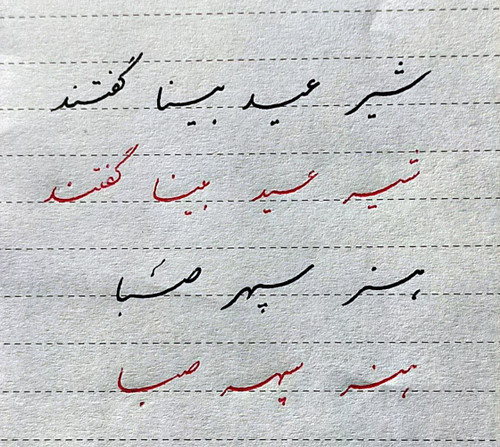 شیر عید بینا گفتند
شیر عید بینا گفتند
هنر سپهر صبا
هنر سپهر صبا